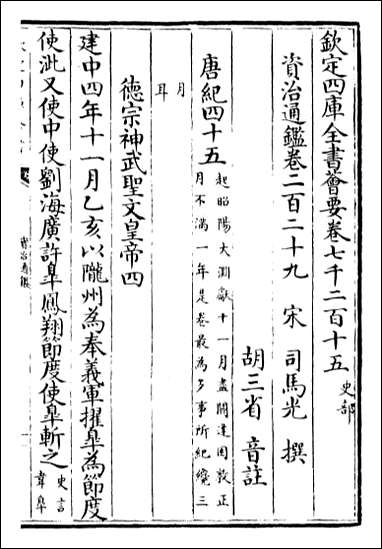 欽定四庫全書薈要卷七千二百十五 史部
資治通鑑卷二百二十九 宋 司馬光 撰
胡三省 音註
唐紀四十五 起昭陽大淵獻十一月盡閼逢困敦正
月不滿一年是卷最為多事所紀纔三
月
耳
德宗神武聖文皇帝四
建中四年十一月乙亥以隴州為奉義軍擢臯為節度
使泚又使中使劉海廣許臯鳳翔節度使臯斬之 史言
韋臯